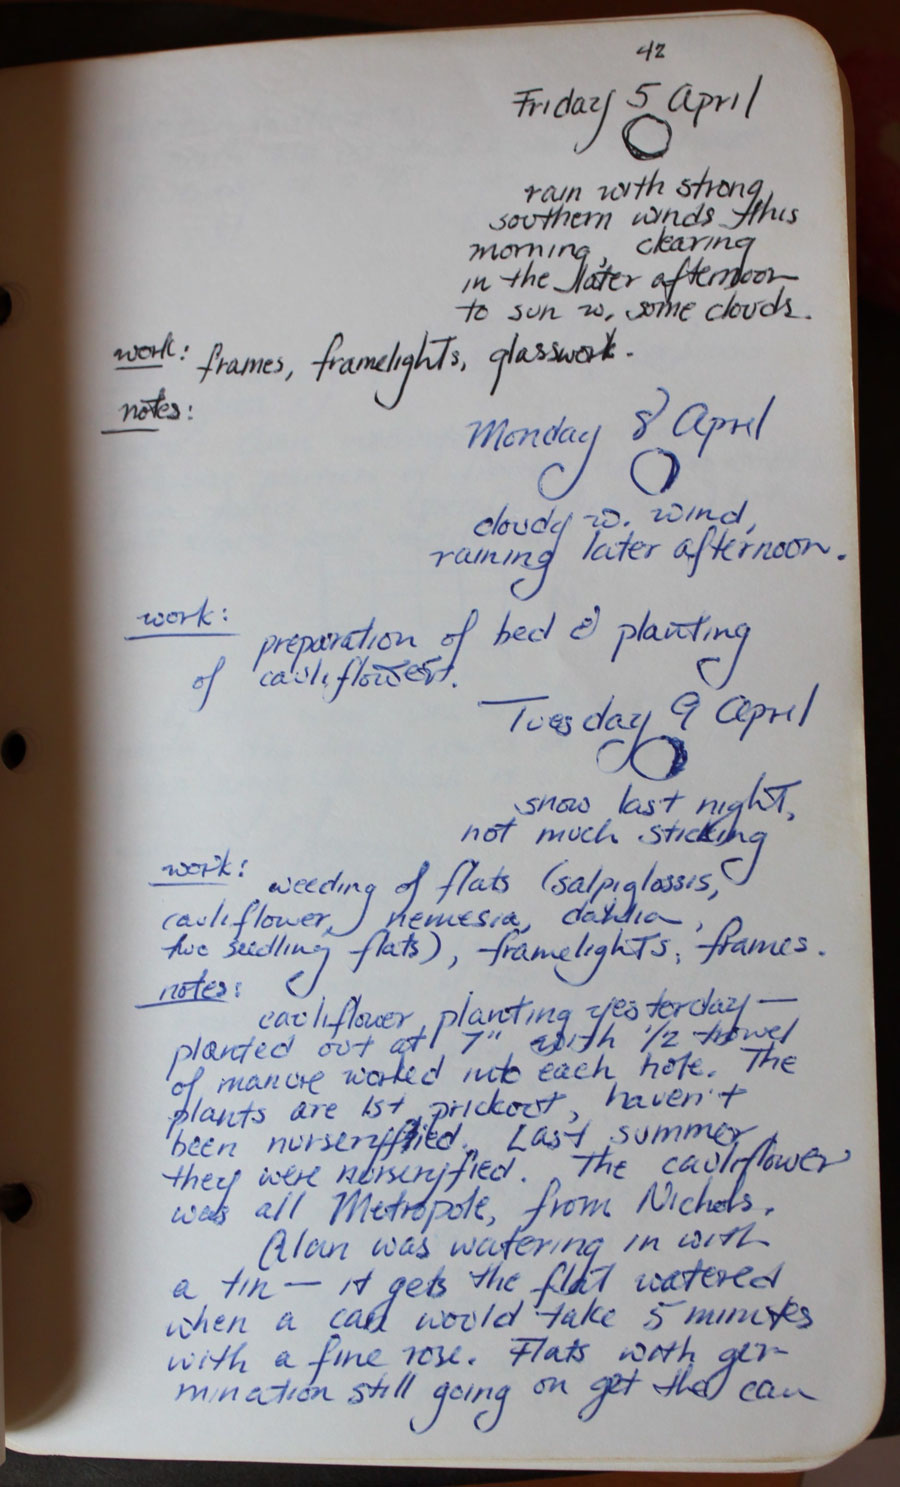 42
Friday 5 April
rain with strong
southern winds this
morning, clearing
in the later afternoon
to sun w. some clouds.
work: frames, framelights, glasswork.
notes:
Monday 8 April
cloudy w. wind,
raining later afternoon.
work:
preparation of bed & planting
of cauliflowers.
Tuesday 9 April
snow last night,
not much sticking
work:
weeding of flats (salpiglossis,
cauliflower, nemesia, dahlia,
two seedling flats), framelights, frames.
notes:
cauliflower planting yesterday —
planted out at 7" with 1/2 trowel
of manure worked into each hole. The
plants are 1st prickout, haven't
been nurseryfied. Last summer
they were nurseryfied. The cauliflower
was all Metropole, from Nichols.
Alan was watering in with
a tin — it gets the flat watered
when a can would take 5 minutes
with a fine rose. Flats with ger-
mination still going on get the can